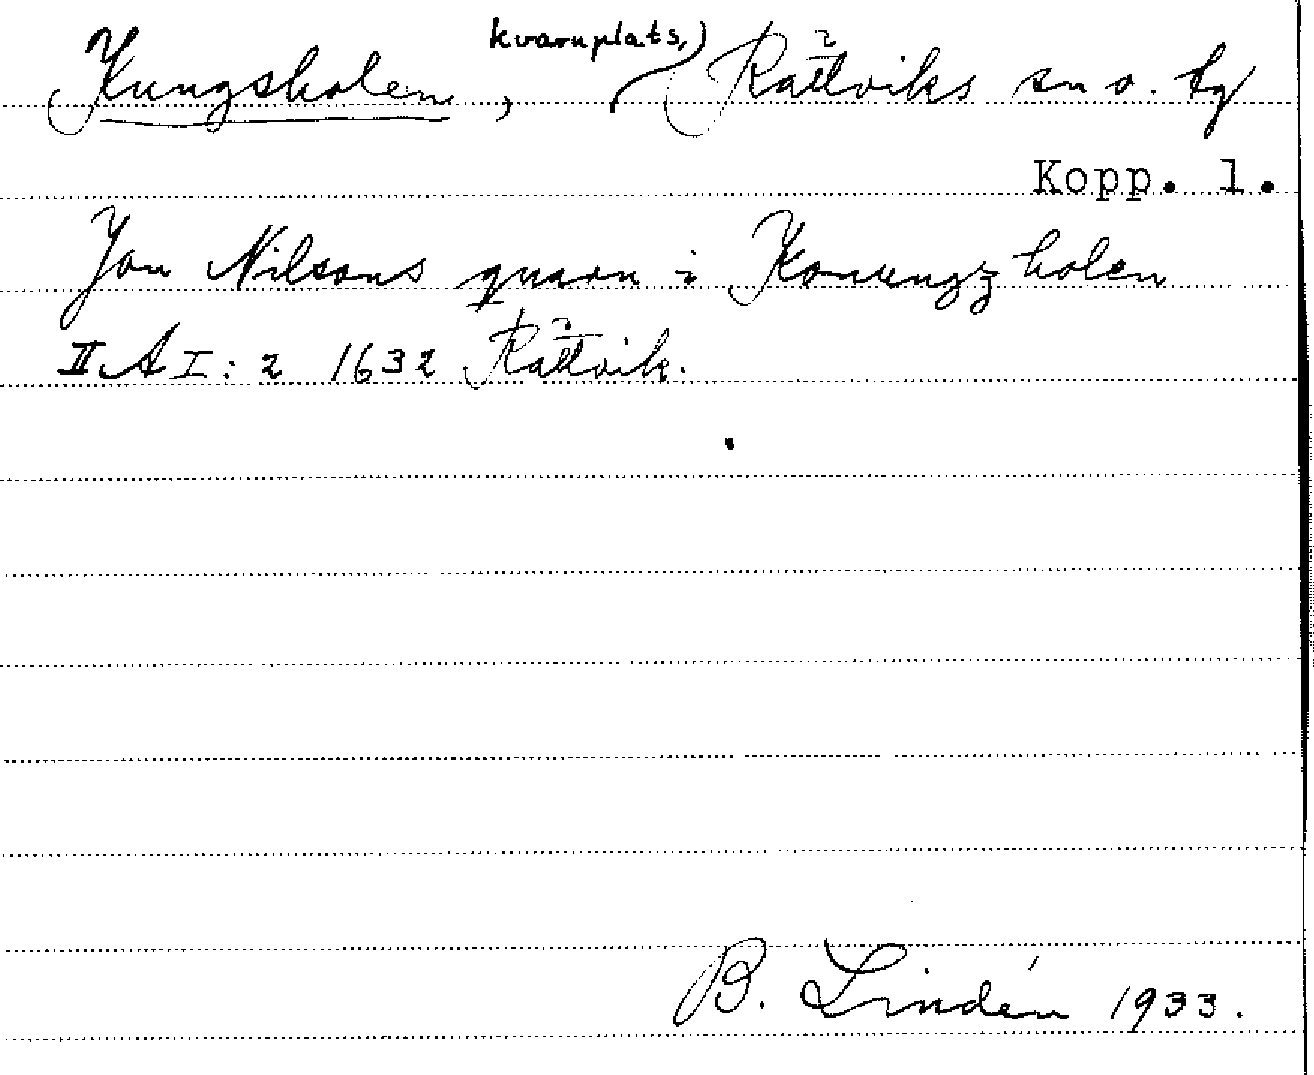 Kungsholen, kvarnplats, Rättviks sn o. tg
Kopp. l.
Jon Nilsons quarn i Konungzholen
II A I: 2 1632 Rättvik.
B. Lindén 1933.